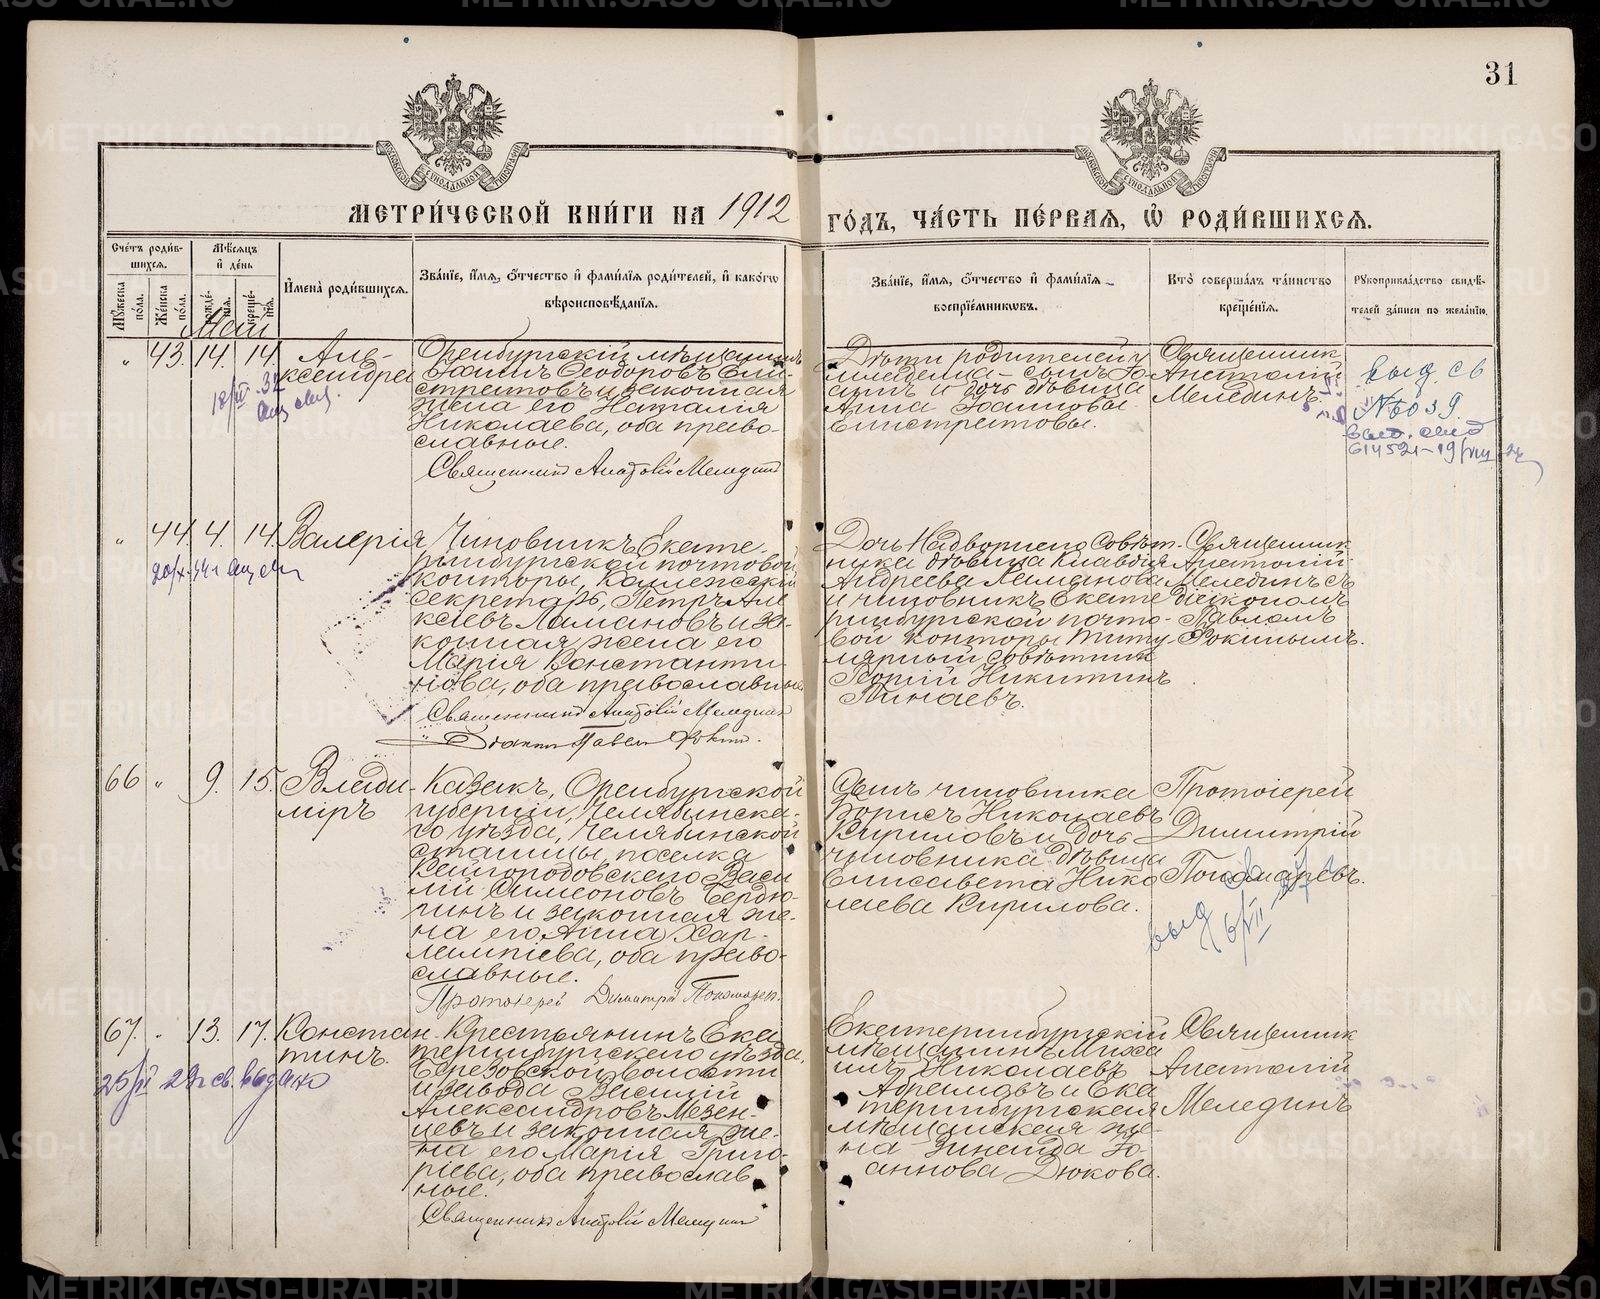 31
МЕТРИ́ЧЕСКОЙ КНИ́ГИ НА 1912
ГО́ДЪ, ЧА́СТЬ ПЕ́РВАЯ, Ѡ҆ РОДИ́ВШИХСЯ.
Сче́тъ роди́в-
шихся.
Мѣ́сяцъ
и҆ де́нь
И҆мена̀ роди́вшихся.
Зва́нїе, и҆́мя, ѻ҆́тчество и҆ фами́лїя роди́телей, и҆ како́гѡ
вѣроисповѣ́данїя.
Мꙋ́жеска
по́ла.
Же́нска
по́ла.
рожде́-
нїя.
креще́-
нїя.
Зва́нїе, и҆́мя, ѻ҆́тчество и҆ фами́лїя
воспрїе́мникѡвъ.
Кто̀ соверша́лъ та́инство
креще́нїя.
Рꙋкоприкла́дство свидѣ́-
телей за́писи по жела́нїю.
Май
" 43. 14. 14.
Але-
ксандра
Оренбургскій мѣщанинъ
Іоаннъ Ѳеодоровъ Ели-
стратовъ и законная
жена его Наталія
Николаева, оба право-
славные.
Священникъ Анатолій Меледин
Дѣти родителей
младенца - сынъ Іо-
аннъ и дочь дѣвица
Анна Іоанновы
Елистратовы.
Священник
Анатолій
Мелединъ.
выд. св
№ 6039.
" 44. 4. 14.
Валерія
Чиновникъ Екате-
ринбургской почтовой
конторы, Коллежскій
секретарь, Петръ Але
ксѣевъ Ламановъ и за-
конная жена его
Марія Константи-
нова, оба православные.
Священникъ Анатолій Меледин
Діаконъ Павелъ Фокин.
Дочь Надворнаго Совѣт-
ника дѣвица Клавдія
Андреева Ламанова
и чиновникъ Екате
ринбургской почто-
вой конторы Титу
лярный совѣтник
Георгій Никитинъ
Пинаевъ.
Священник
Анатолій
Мелединъ съ
діакономъ
Павломъ
Фокинымъ.
66 " 9. 15.
Влади-
міръ
Казакъ, Оренбургской
губерніи, Челябинска-
го уѣзда, Челябинской
станицы, поселка
Васи
лій Симеоновъ Бердю-
гинъ и законная же-
на его Анна Хар-
лампіева, оба право-
славные.
Протоіерей Димитрій Пономарев.
Сынъ чиновника
Борисъ Николаевъ
Кириловъ и дочь
чиновника дѣвица
Елисавета Нико
лаева Кирилова.
Протоіерей
Димитрій
Пономаревъ.
выд
67. " 13. 17.
Констан-
тинъ.
25/ 29 г св. выдано
Крестьянинъ Ека
теринбургскаго уѣзда,
Березовской волости
и завода Василій
Александровъ Мезен-
цевъ и законная же-
на его Марія Григо-
ріева, оба православ
ные.
Священникъ Анатолій Меледин
Екатеринбургскій
мѣщанинъ Миха
илъ Николаевъ
Абрамовъ и Ека
теринбургская
мѣщанская же-
на Зинаида Іо-
аннова Дюкова.
Священник
Анатолій
Мелединъ
METRIKI.GASO-URAL.RU